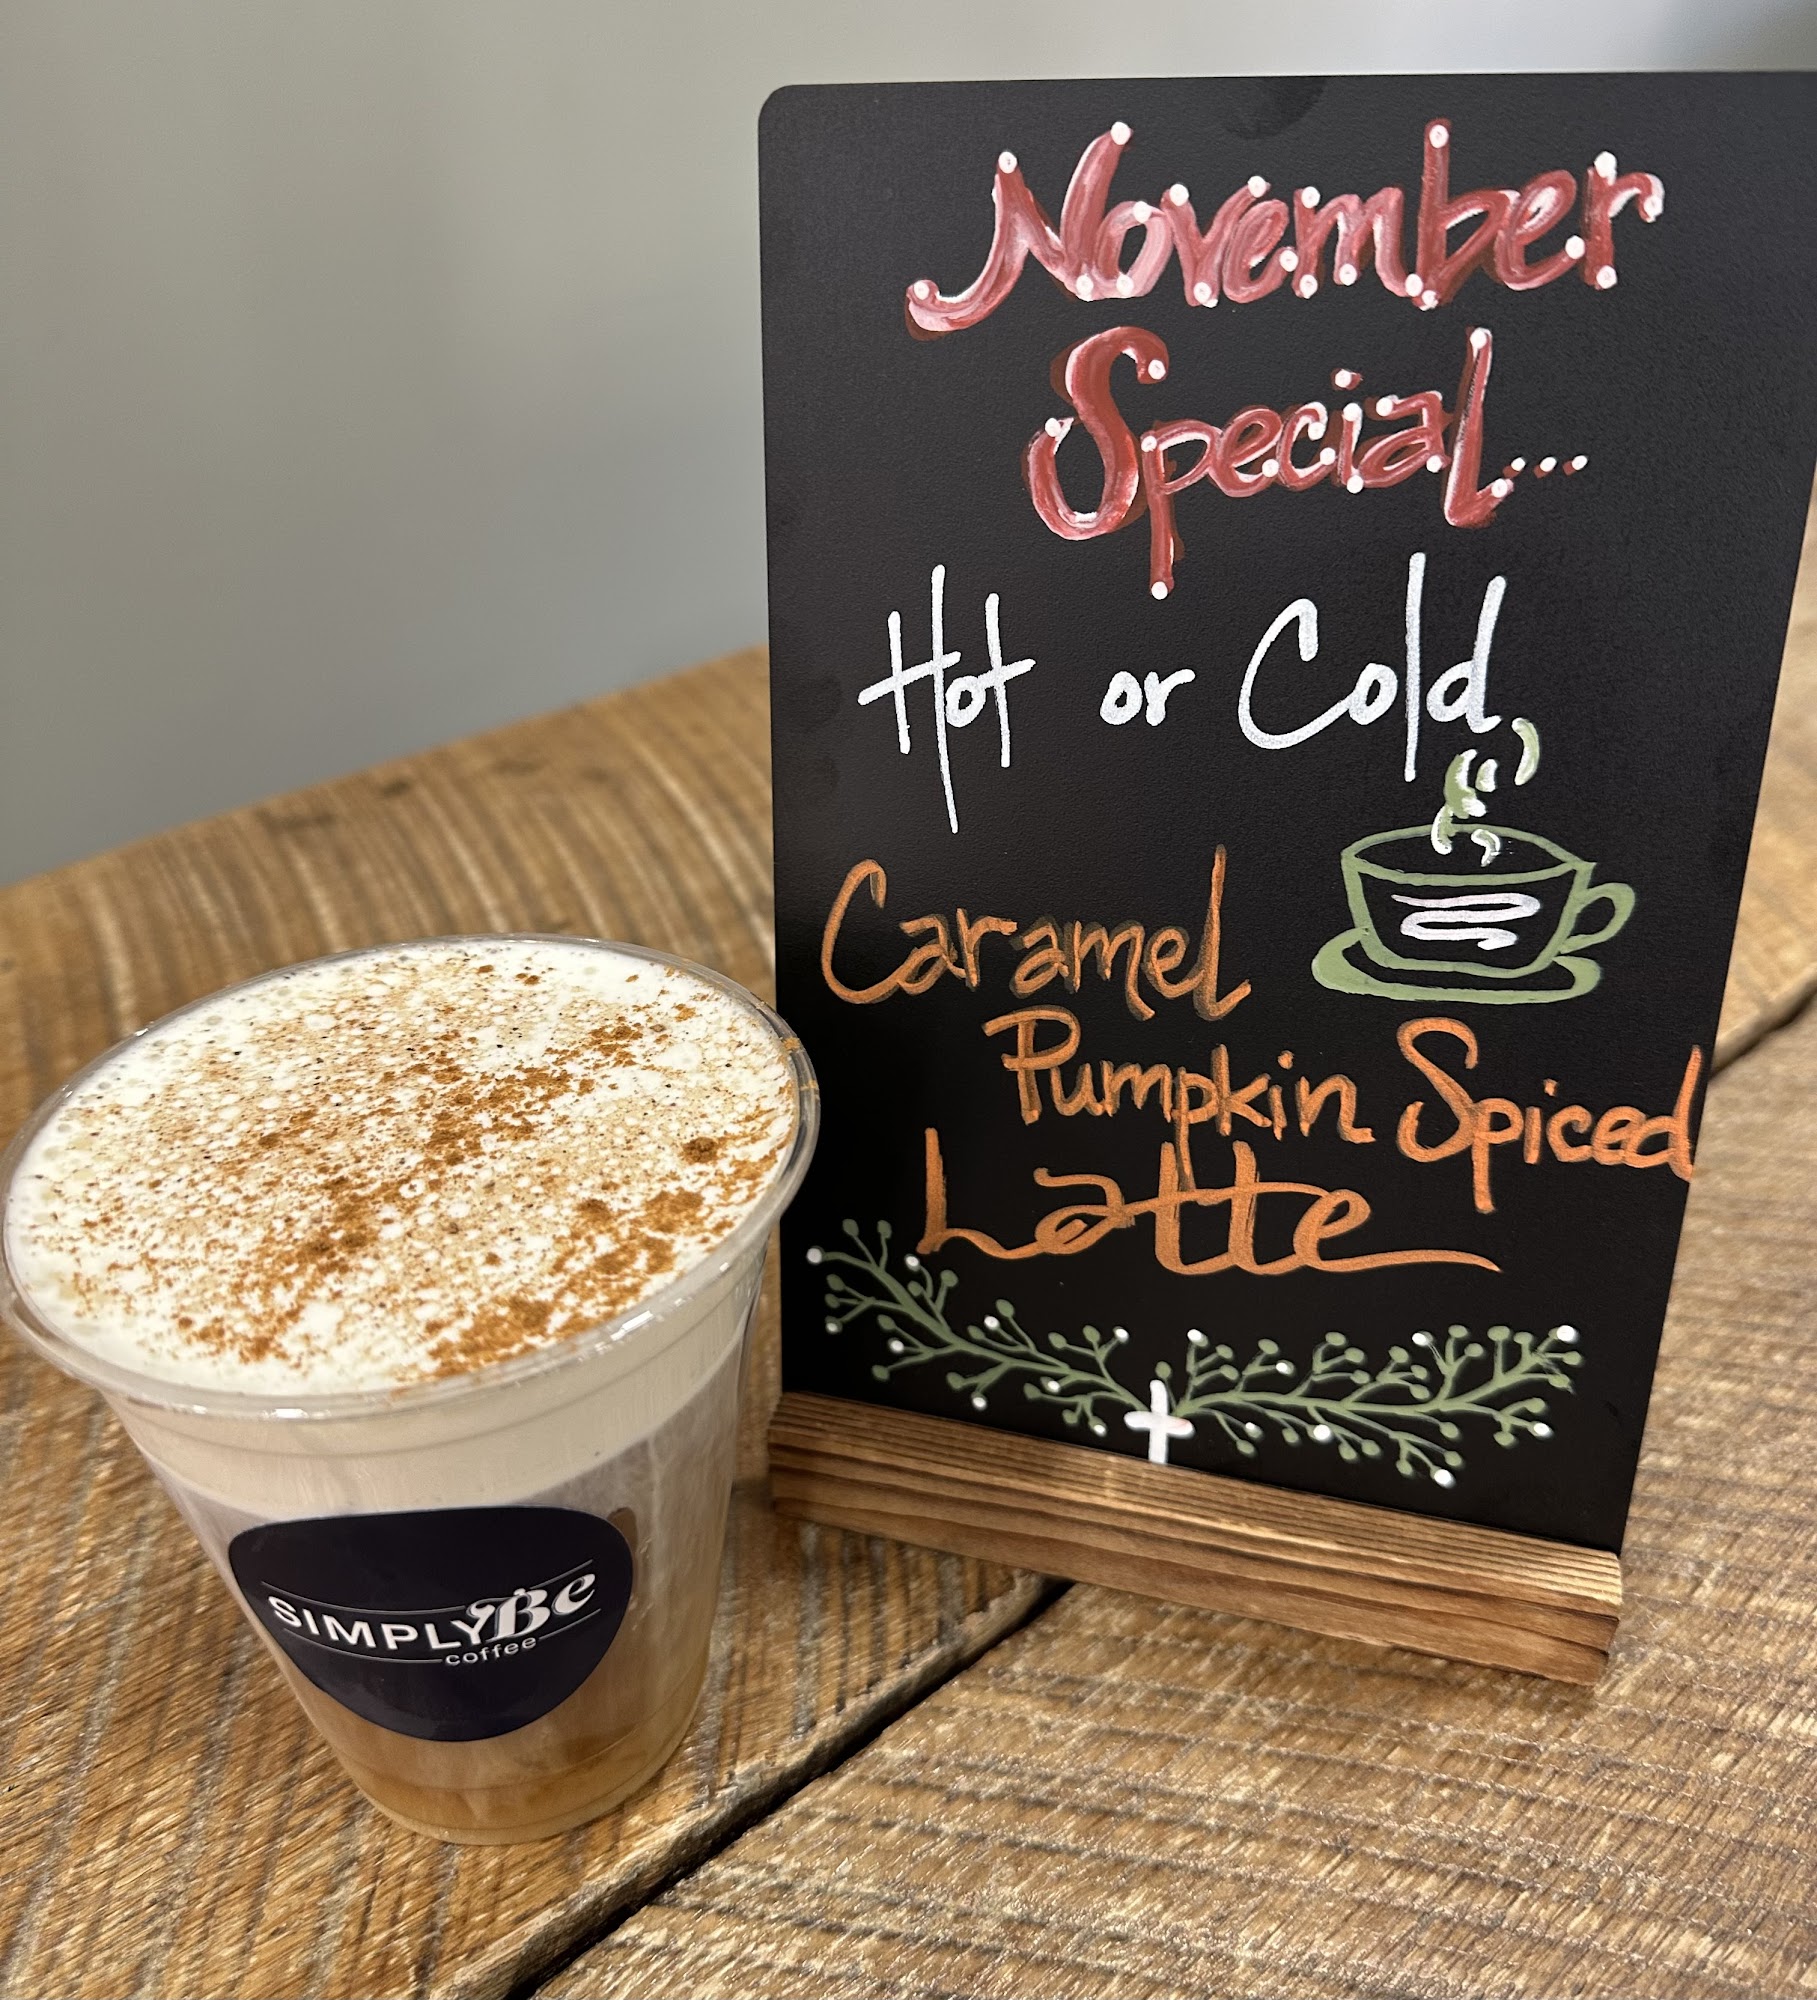 November
Special...
Hot or Cold
Caramel
Pumpkin Spiced
Latte
SIMPLY Be
coffee